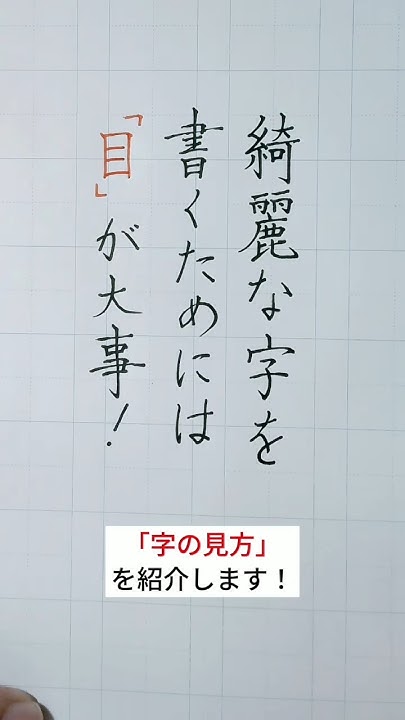 綺麗な字を
書くためには
「目」が大事！
「字の見方」
を紹介します！